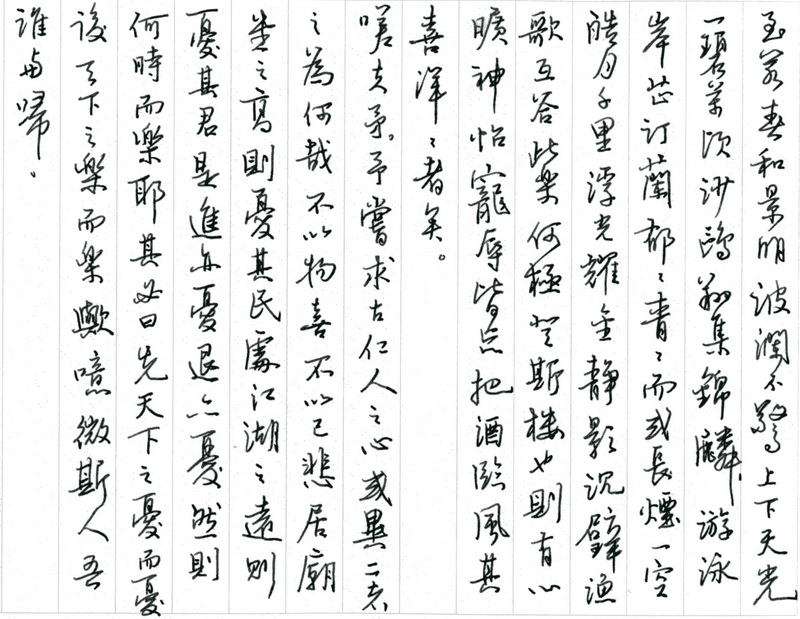 至若春和景明波瀾不驚上下天光
一碧萬頃沙鷗翔集錦鱗游泳
岸芷汀蘭郁〻青〻而或長煙一空
皓月千里浮光耀金靜影沉璧漁
歌互答此樂何極登斯樓也則有心
曠神怡寵辱皆忘把酒臨風其
喜洋〻者矣。
嗟夫予。予嘗求古仁人之心或異二者
之為何哉不以物喜不以己悲居廟
堂之高則憂其民處江湖之遠則
憂其君是進亦憂退亦憂然則
何時而樂耶其必曰先天下之憂而憂
後天下之樂而樂歟噫微斯人吾
誰與歸。